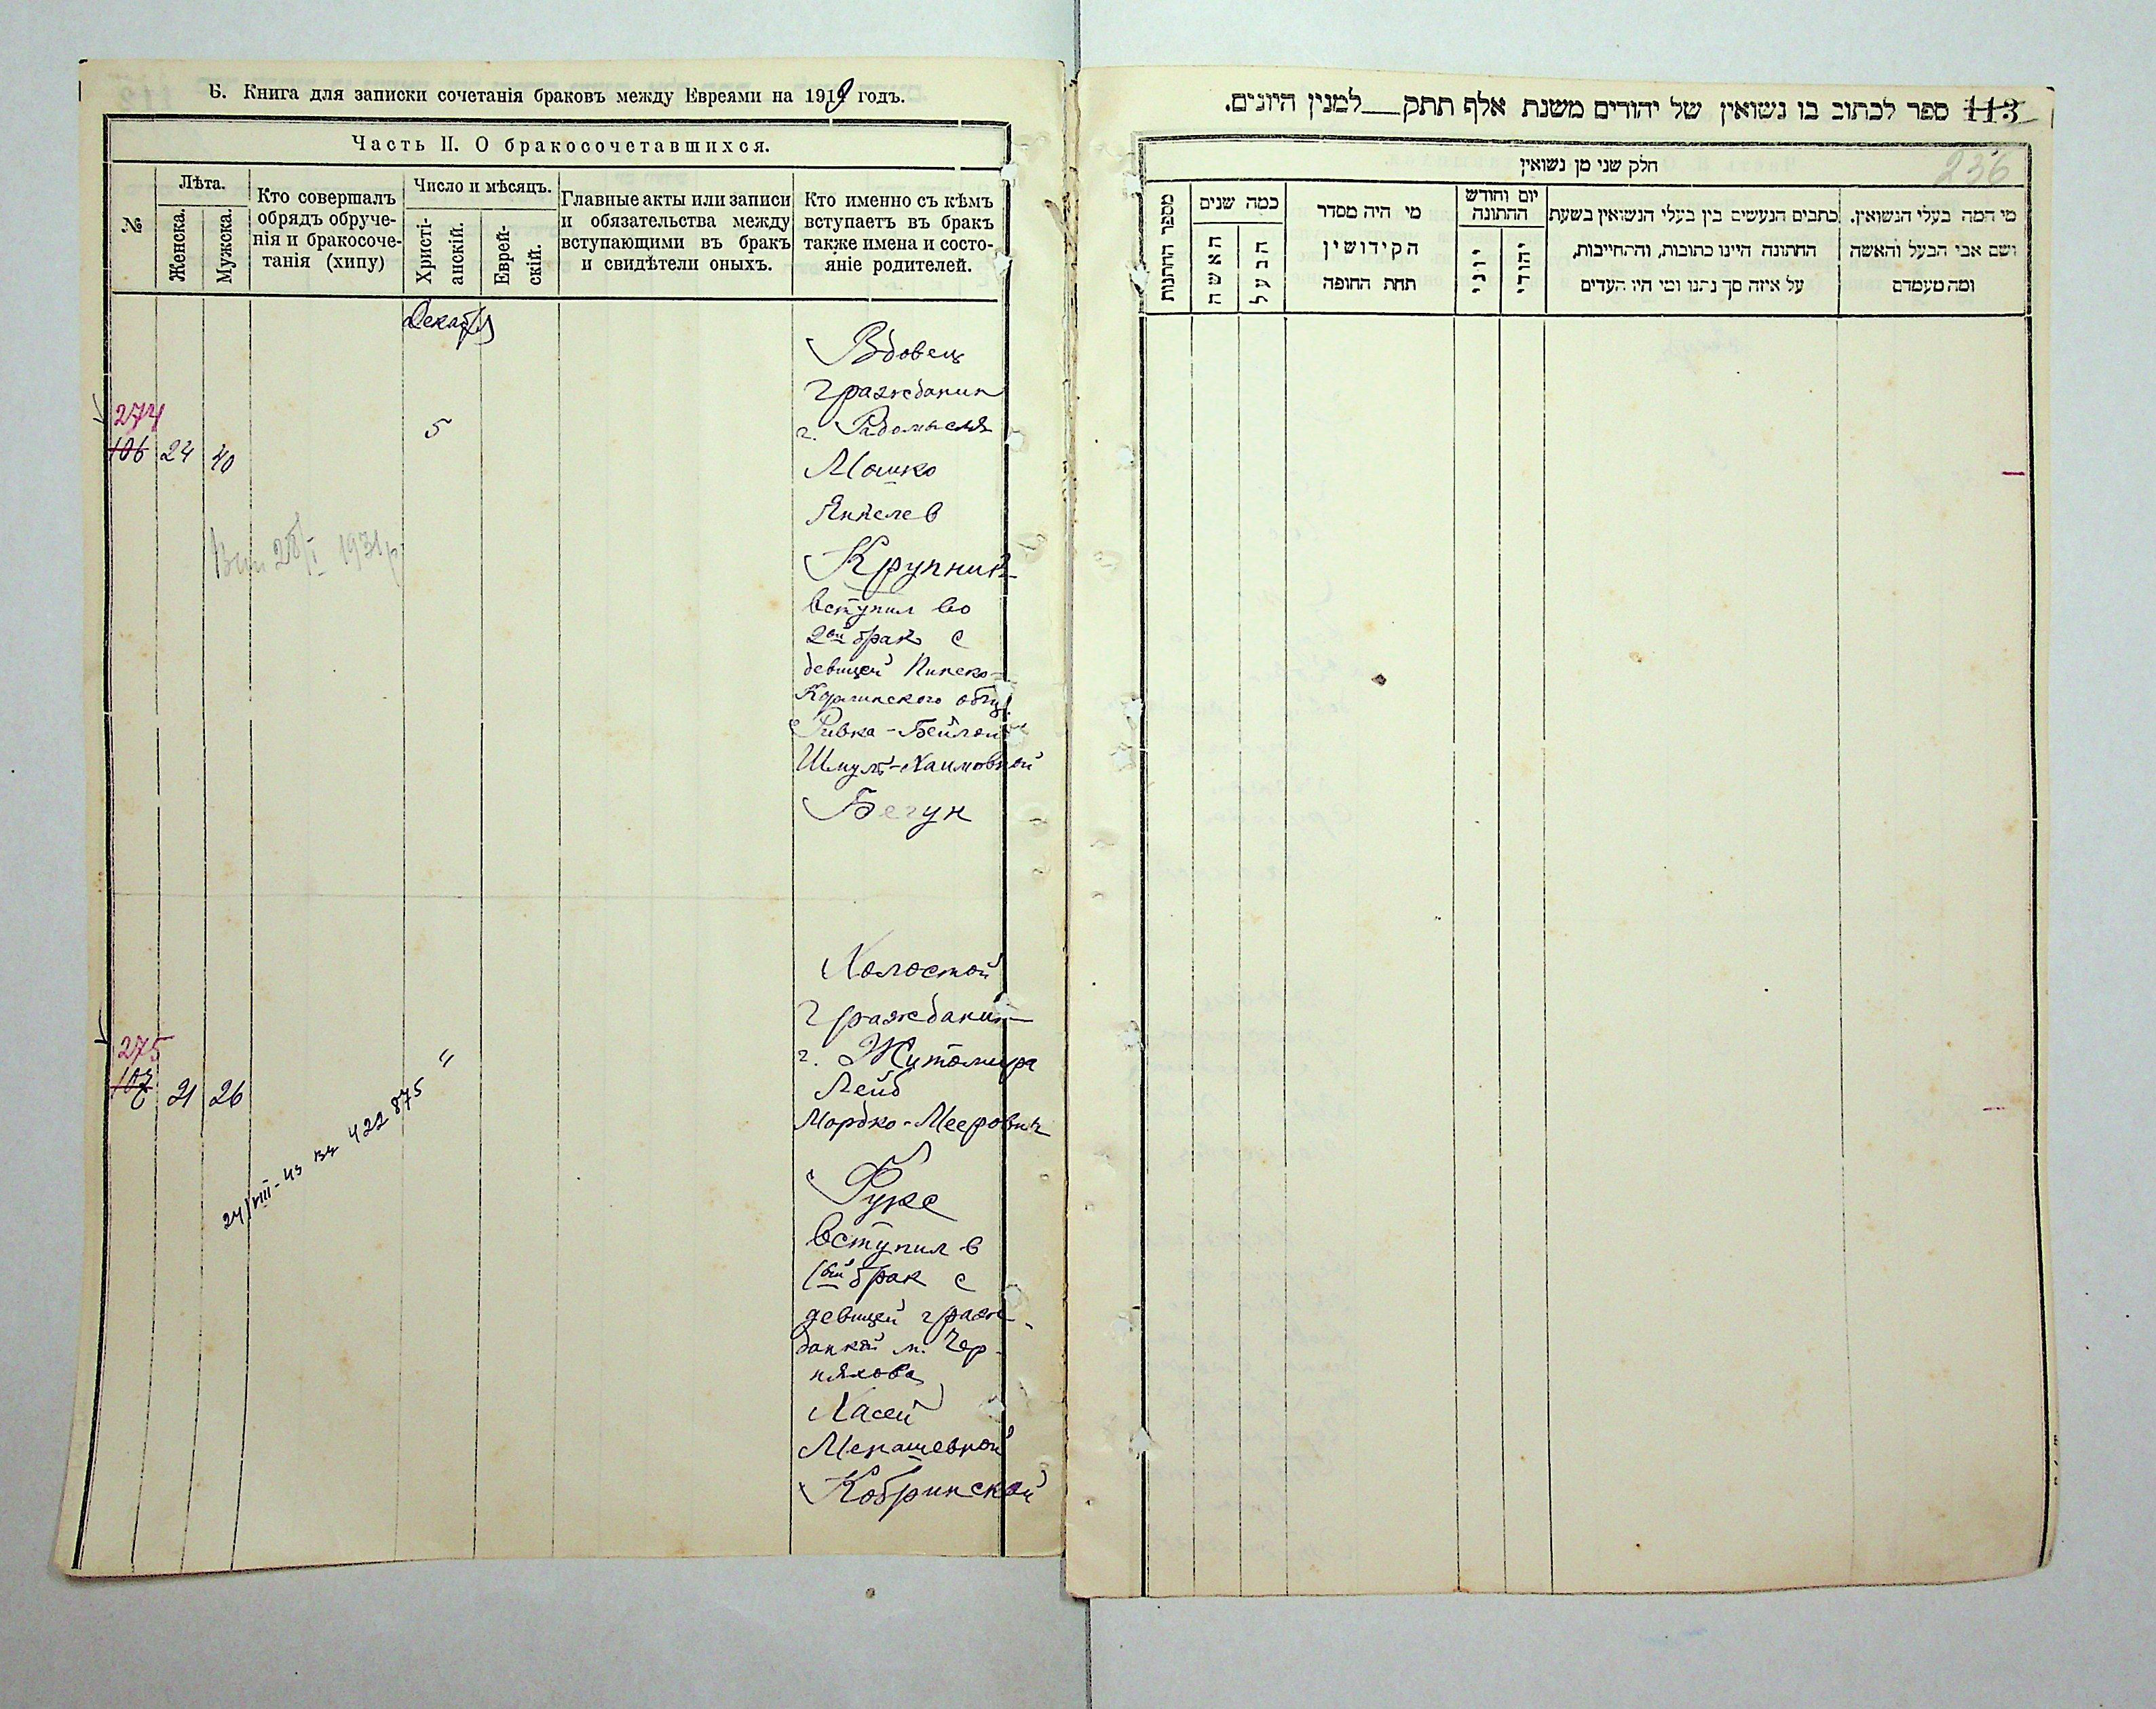 Б. Книга для записки сочетанія браковъ между Евреями на 1919 годъ.
Часть II. О бракосочетавшихся.
№
Лѣта.
Женска.
Мужска.
Кто совершалъ
обрядъ обруче-
нія и бракосоче-
танія (хипу)
Число и мѣсяцъ.
Христі-
анскій.
Еврей-
скій.
Главные акты или записи
и обязательства между
вступающими въ бракъ
и свидѣтели оныхъ.
Кто именно съ кѣмъ
вступаетъ въ бракъ
также имена и состо-
яніе родителей.
Декабря
274
106 24 40
5
Вдовец
гражданин
г. Радомысля
Мошко
Янкелев
Крупник
вступил во
2ой брак с
девицей Пинско-
Карлинского общ.
Ривка-Бейлой
Шмуль-Хаимовной
Бегун
28/I 1931 р
275
107 21 26
"
24/VIII-43 вч 422875
Холостой
гражданин
г. Житомира
Лейб
Мордко-Меерович
Фукс
вступил в
1ый брак с
девицей граж-
данкой м. Чер-
няхова
Хасей
Менашевной
Кобринской
113 ספר לכתוב בו נשואין של יהודים משנת אלף תתק למנין היונים.
236
חלק שני מן נשואין
מספר החתנות
כמה שנים
האשה
הבעל
מי היה מסדר
הקידושין
תחת החופה
יום וחודש
החתונה
יוני
יהודי
כתבים הנעשים בין בעלי הנשואין בשעת
החתונה היינו כתובות, והתחייבות,
על איזה סך נתנו ומי היו העדים
מי המה בעלי הנשואין.
ושם אבי הבעל והאשה
ומה מעמדם